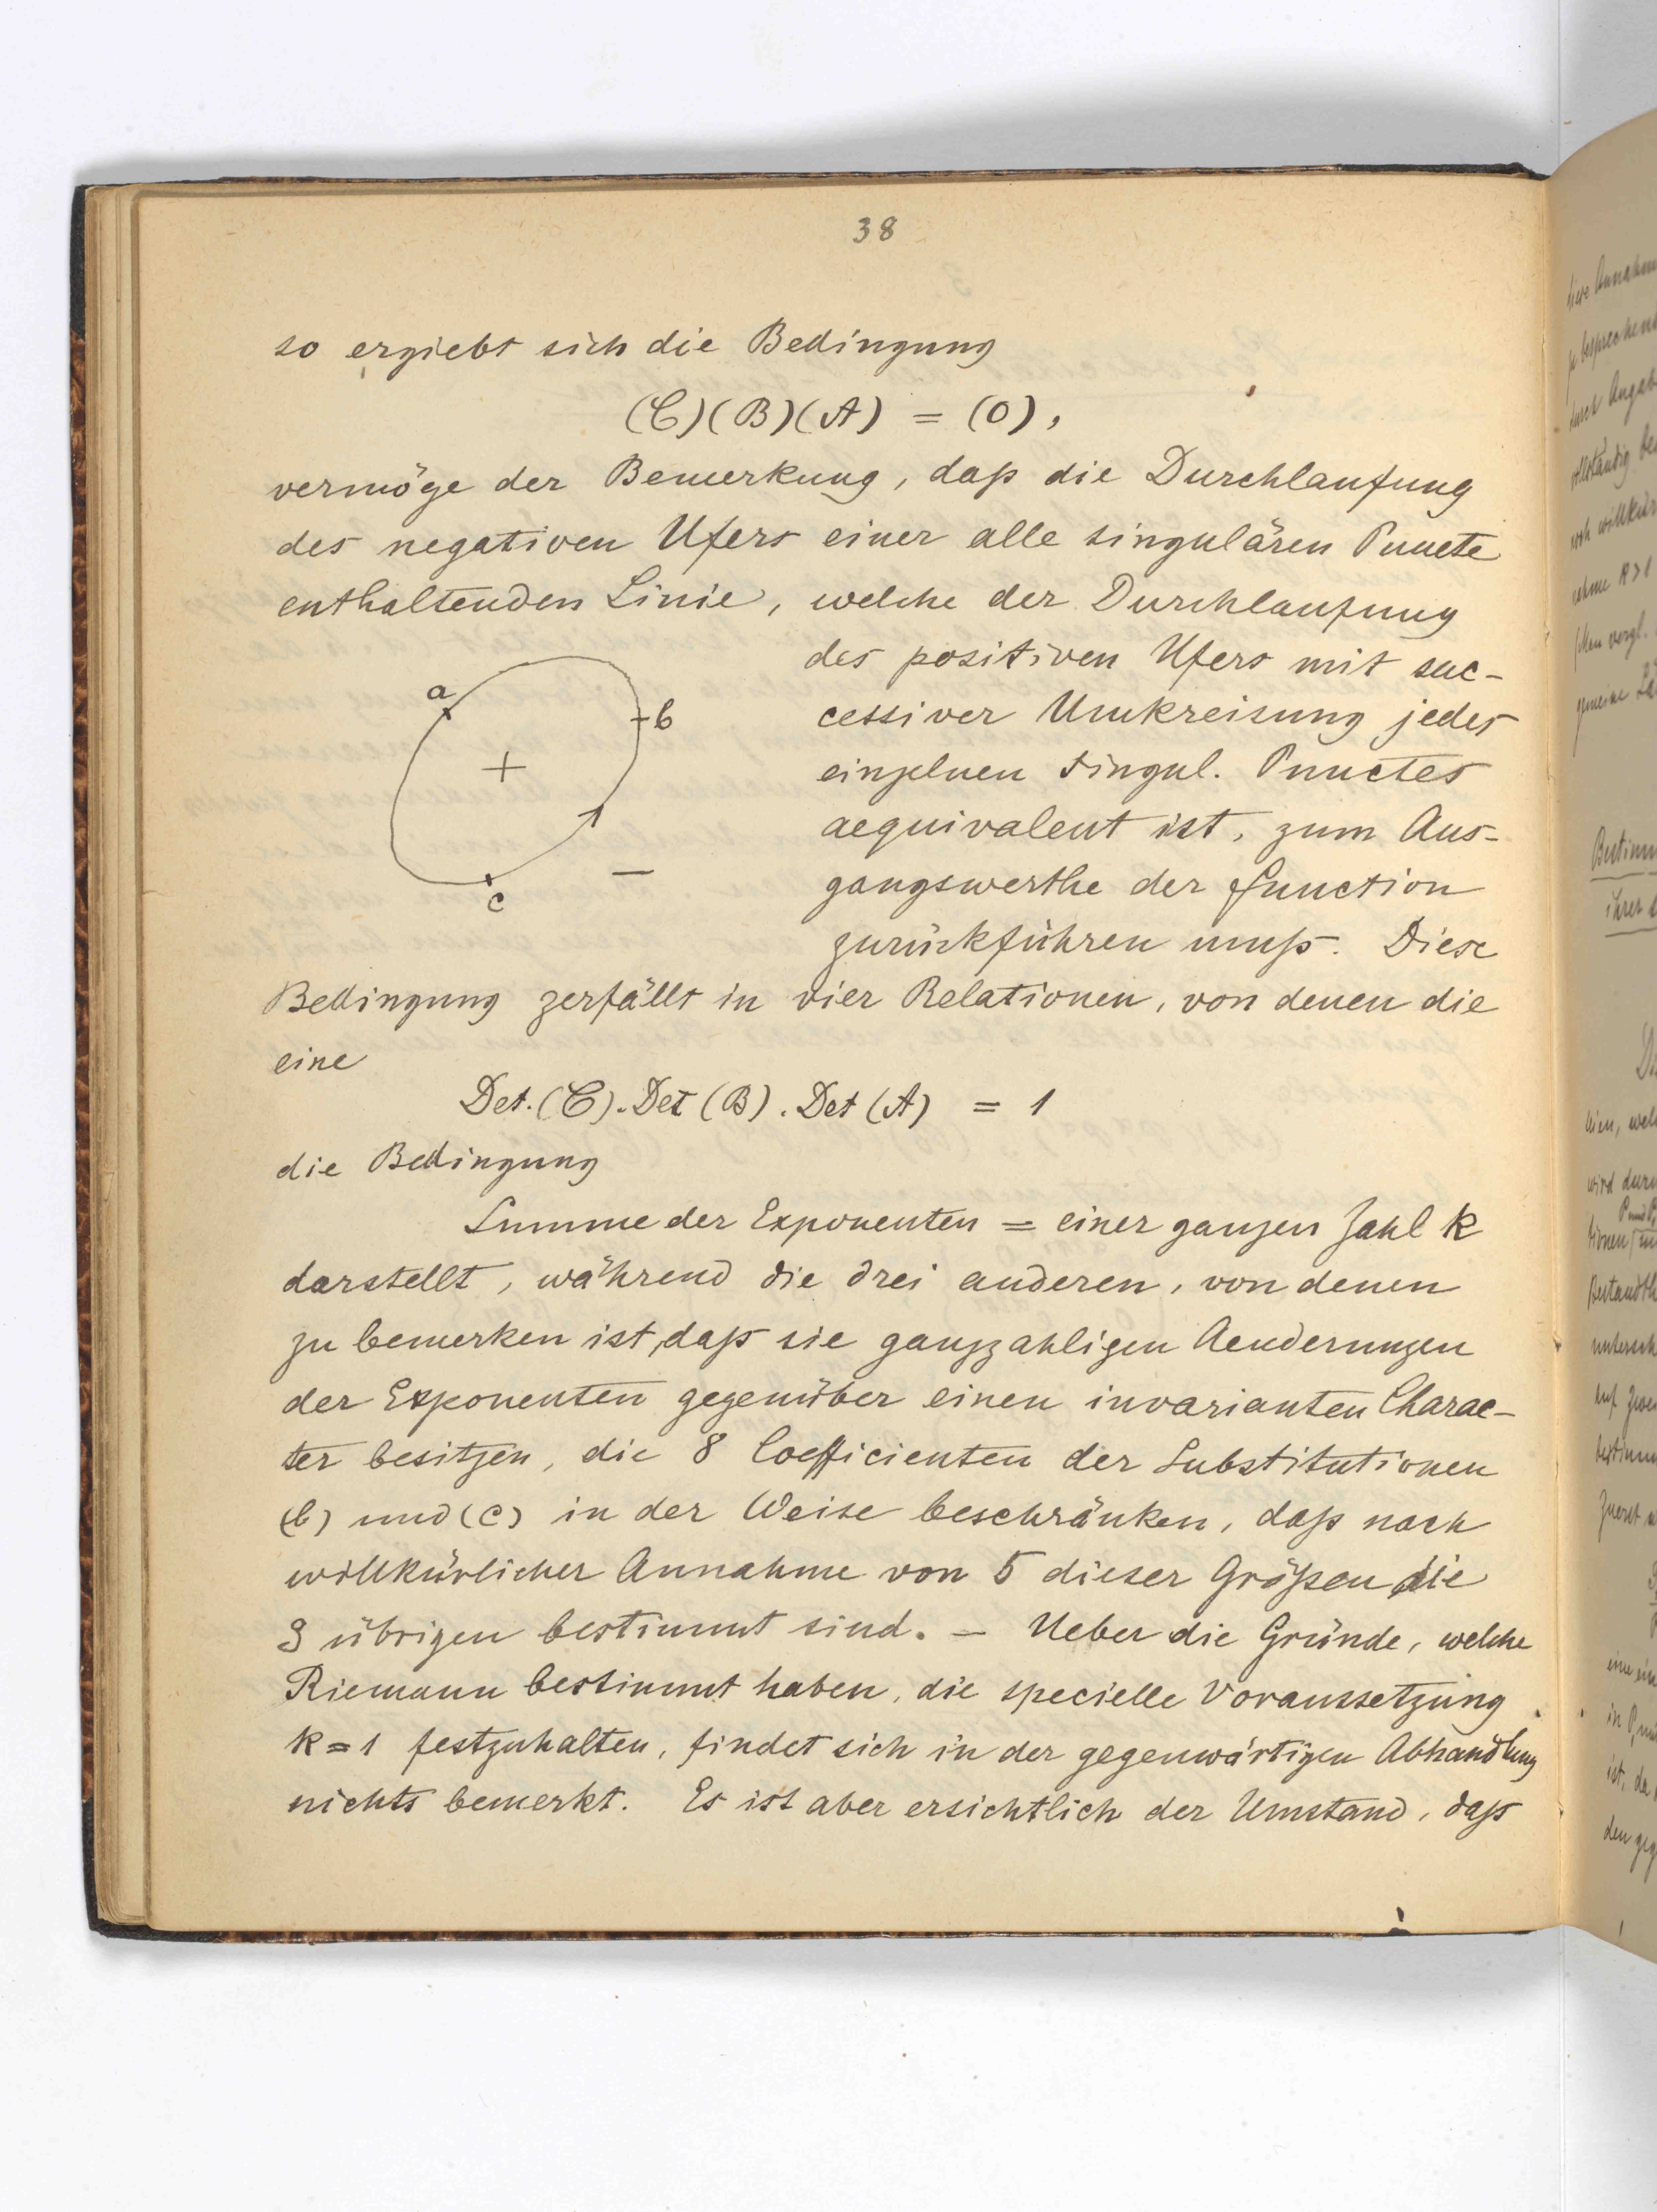 38
so ergiebt sich die Bedingung
(C)(B)(A) = (0),
vermöge der Bemerkung, daß die Durchlaufung
des negativen Ufers einer alle singulären Puncte
enthaltenden Linie, welche der Durchlaufung
des positiven Ufers mit suc-
cessiver Umkreisung jedes
einzelnen singul. Punctes
aequivalent ist, zum Aus-
gangswerthe der Function
zurückführen muß. Diese
a
b
+
−
c
Bedingung zerfällt in vier Relationen, von denen die
eine
Det.(C).Det(B).Det(A) = 1
die Bedingung
Summe der Exponenten = einer ganzen Zahl k
darstellt, während die drei anderen, von denen
zu bemerken ist, daß sie ganzzahligen Aenderungen
der Exponenten gegenüber einen invarianten Charac-
ter besitzen, die 8 Coefficienten der Substitutionen
(b) und (c) in der Weise beschränken, daß nach
willkürlicher Annahme von 5 dieser Größen die
3 übrigen bestimmt sind. – Ueber die Gründe, welche
Riemann bestimmt haben, die specielle Voraussetzung
k = 1 festzuhalten, findet sich in der gegenwärtigen Abhandlung
nichts bemerkt. Es ist aber ersichtlich der Umstand, daß